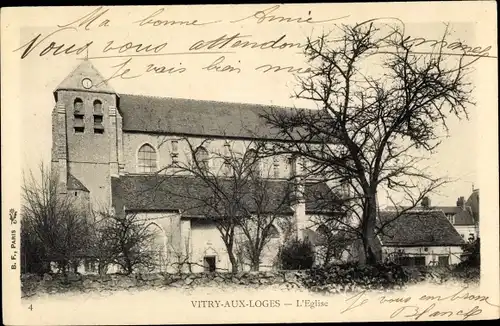 Ma bonne Annie
Nous vous attendons dimanche
je vais bien maman
B. F., PARIS
4 VITRY-AUX-LOGES — L'Eglise
Je vous embrasse
Blanche